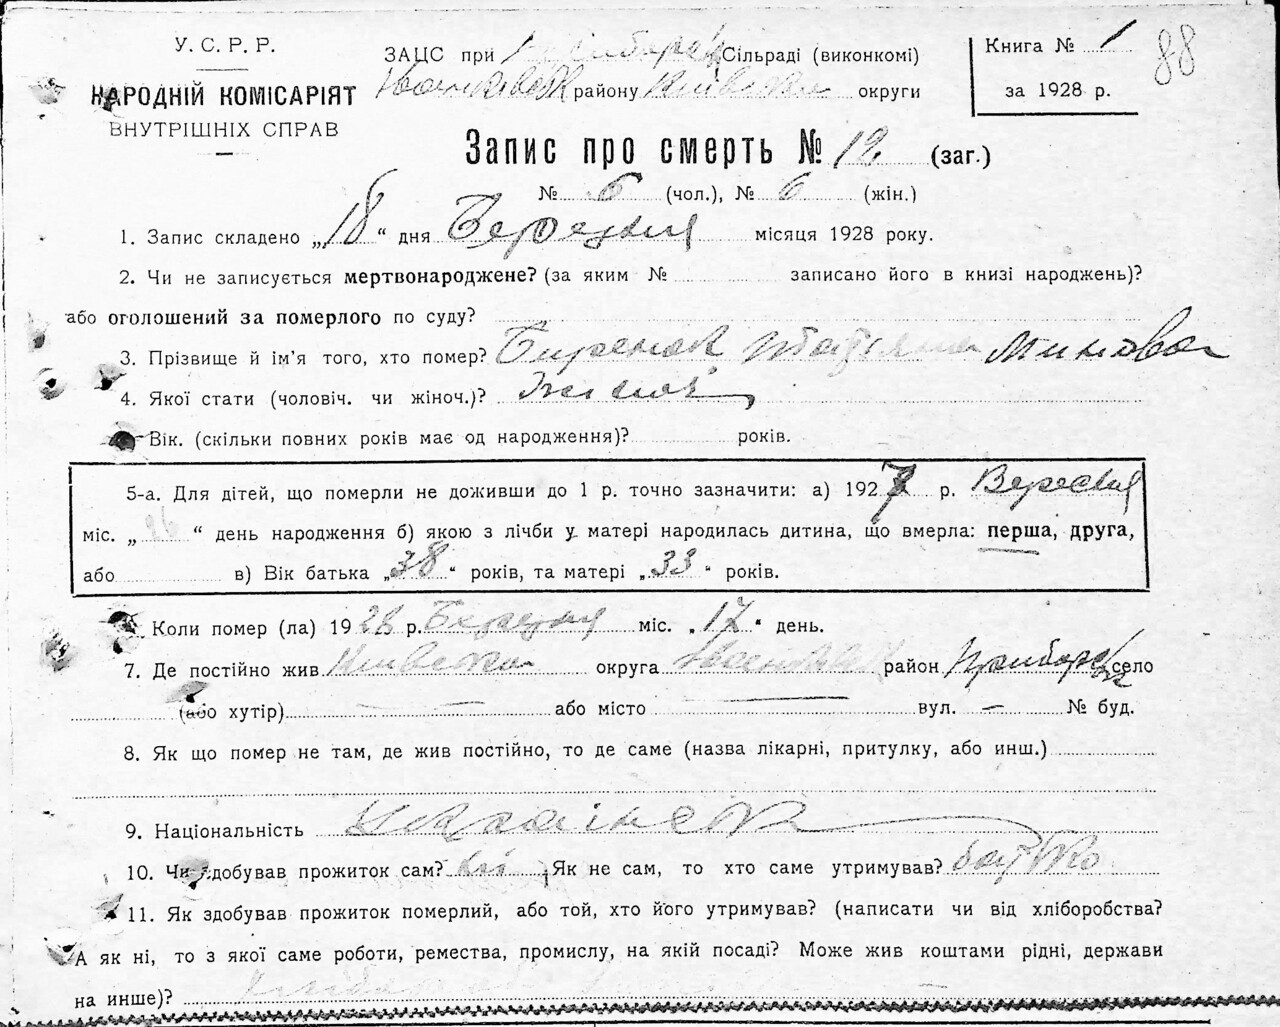 У. С. Р. Р.
НАРОДНІЙ КОМІСАРІЯТ
ВНУТРІШНІХ СПРАВ
ЗАЦС при Сільраді (виконкомі)
району Київської округи
Книга № 1
за 1928 р.
88
Запис про смерть № 12 (заг.)
№ 6 (чол.), № 6 (жін.)
1. Запис складено „18“ дня Березня місяця 1928 року.
2. Чи не записується мертвонароджене? (за яким № записано його в книзі народжень)?
або оголошений за померлого по суду?
3. Прізвище й ім'я того, хто помер?
4. Якої стати (чоловіч. чи жіноч.)?
Вік. (скільки повних років має од народження)? років.
5-а. Для дітей, що померли не доживши до 1 р. точно зазначити: а) 1927 р. Вересня
міс. „26“ день народження б) якою з лічби у матері народилась дитина, що вмерла: перша, друга,
або в) Вік батька „38“ років, та матері „33“ років.
Коли помер (ла) 1928 р. Березня міс. „17“ день.
7. Де постійно жив Київська округа район село
(або хутір) — або місто — вул. — № буд.
8. Як що помер не там, де жив постійно, то де саме (назва лікарні, притулку, або инш.)
9. Національність
10. Чи здобував прожиток сам? ні Як не сам, то хто саме утримував? батько
11. Як здобував прожиток померлий, або той, хто його утримував? (написати чи від хліборобства?
А як ні, то з якої саме роботи, ремества, промислу, на якій посаді? Може жив коштами рідні, держави
на инше)?